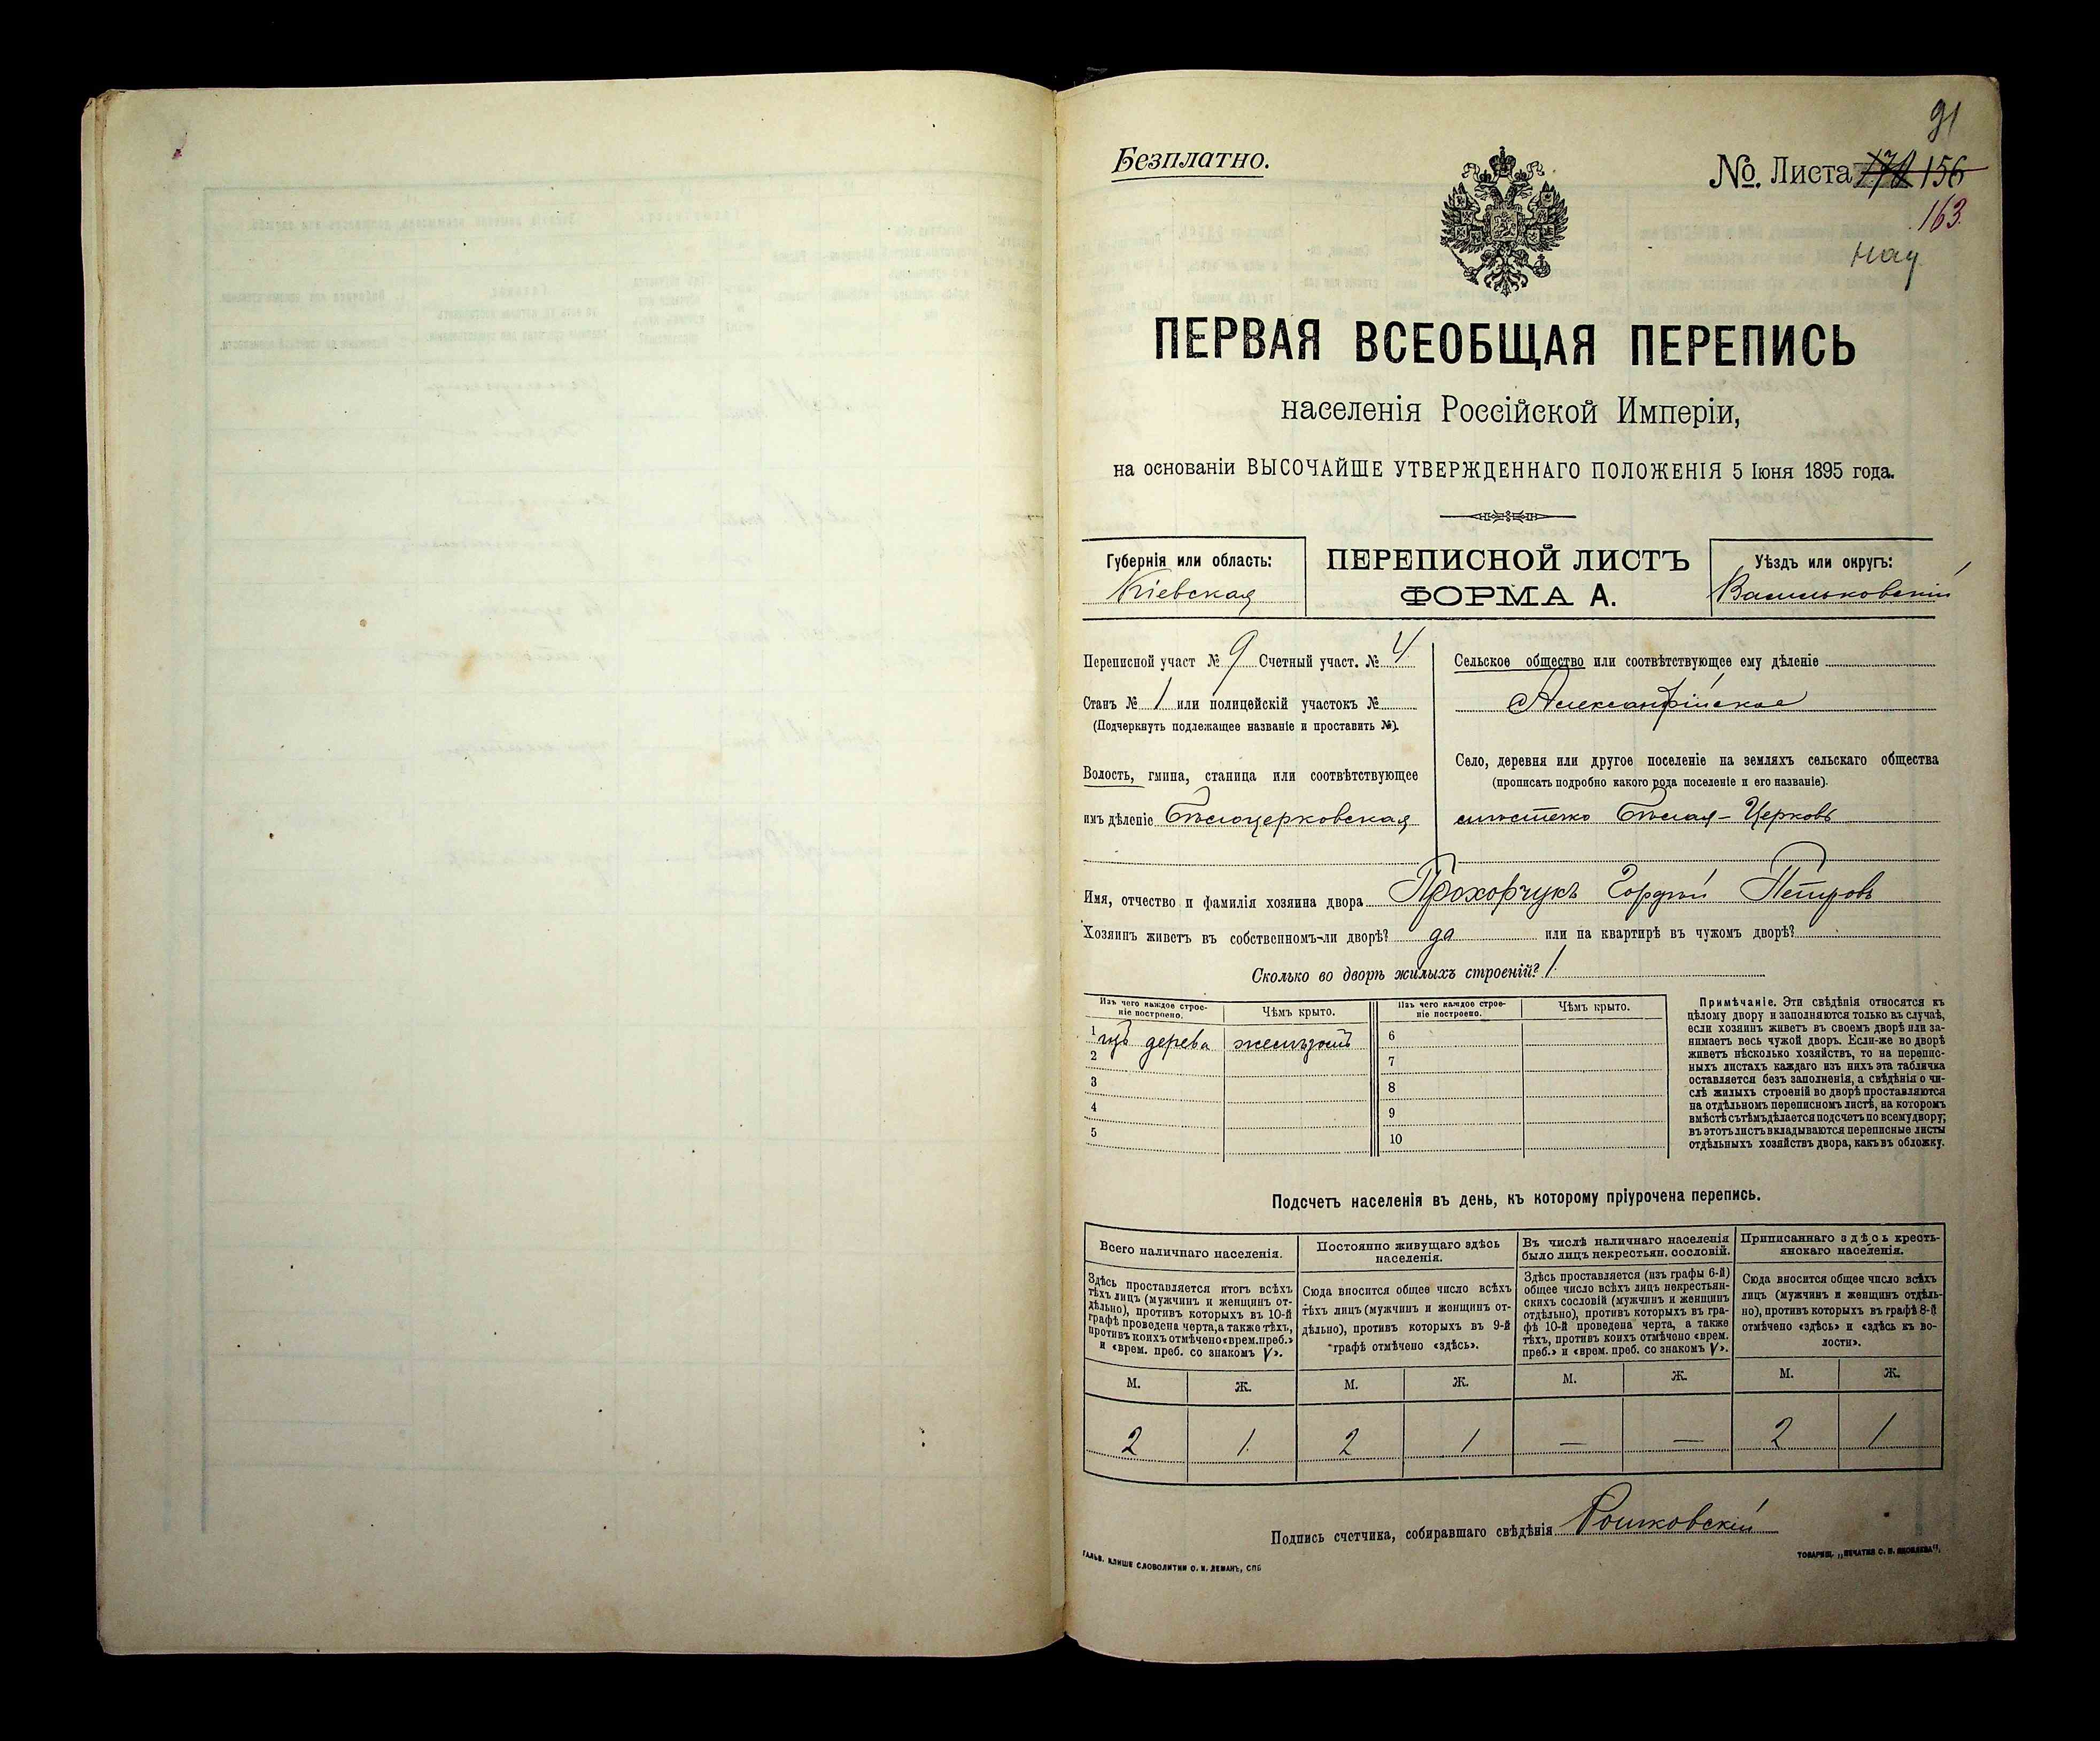 91
Безплатно.
№. Листа 170 156
163.
нач
ПЕРВАЯ ВСЕОБЩАЯ ПЕРЕПИСЬ
населенія Россійской Имперіи,
на основаніи ВЫСОЧАЙШЕ УТВЕРЖДЕННАГО ПОЛОЖЕНІЯ 5 Іюня 1895 года.
Губернія или область:
Кіевская
ПЕРЕПИСНОЙ ЛИСТЪ
ФОРМА А.
Уѣздъ или округъ:
Васильковскій
Переписной участ № 9 Счетный участ. № 4
Станъ № 1 или полицейскій участокъ №
(Подчеркнуть подлежащее названіе и проставить №).
Волость, гмина, станица или соотвѣтствующее
имъ дѣленіе Бѣлоцерковская
Сельское общество или соотвѣтствующее ему дѣленіе
Александрійское
Село, деревня или другое поселеніе на земляхъ сельскаго общества
(прописать подробно какого рода поселеніе и его названіе).
мѣстечко Бѣлая-Церковь
Имя, отчество и фамилія хозяина двора Прохорчукъ Гордѣй Петровъ
Хозяинъ живетъ въ собственномъ-ли дворѣ? да или на квартирѣ въ чужомъ дворѣ?
Сколько во дворѣ жилыхъ строеній? 1.
Изъ чего каждое строе-
ніе построено.
Чѣмъ крыто.
Изъ чего каждое строе-
ніе построено.
Чѣмъ крыто.
1 изъ дерева желѣзомъ 6
2 7
3 8
4 9
5 10
Примѣчаніе. Эти свѣдѣнія относятся къ
цѣлому двору и заполняются только въ случаѣ,
если хозяинъ живетъ въ своемъ дворѣ или за-
нимаетъ весь чужой дворъ. Если-же во дворѣ
живетъ нѣсколько хозяйствъ, то на перепис-
ныхъ листахъ каждаго изъ нихъ эта табличка
оставляется безъ заполненія, а свѣдѣнія о чи-
слѣ жилыхъ строеній во дворѣ проставляются
на отдѣльномъ переписномъ листѣ, на которомъ
вмѣстѣ съ тѣмъ дѣлается подсчетъ по всему двору;
въ этотъ листъ вкладываются переписные листы
отдѣльныхъ хозяйствъ двора, какъ въ обложку.
Подсчетъ населенія въ день, къ которому пріурочена перепись.
Всего наличнаго населенія.
Здѣсь проставляется итогъ всѣхъ
тѣхъ лицъ (мужчинъ и женщинъ от-
дѣльно), противъ которыхъ въ 10-й
графѣ проведена черта, а также тѣхъ,
противъ коихъ отмѣчено «врем. преб.»
и «врем. преб. со знакомъ V».
М. Ж.
2 1.
Постоянно живущаго здѣсь
населенія.
Сюда вносится общее число всѣхъ
тѣхъ лицъ (мужчинъ и женщинъ от-
дѣльно), противъ которыхъ въ 9-й
графѣ отмѣчено «здѣсь».
М. Ж.
2 1
Въ числѣ наличнаго населенія
было лицъ некрестьян. сословій.
Здѣсь проставляется (изъ графы 6-й)
общее число всѣхъ лицъ некрестьян-
скихъ сословій (мужчинъ и женщинъ
отдѣльно), противъ которыхъ въ гра-
фѣ 10-й проведена черта, а также
тѣхъ, противъ коихъ отмѣчено «врем.
преб.» и «врем. преб. со знакомъ V».
М. Ж.
— —
Приписаннаго здѣсь кресть-
янскаго населенія.
Сюда вносится общее число всѣхъ
лицъ (мужчинъ и женщинъ отдѣль-
но), противъ которыхъ въ графѣ 8-й
отмѣчено «здѣсь» и «здѣсь къ во-
лости».
М. Ж.
2 1
Подпись счетчика, собиравшаго свѣдѣнія Рошковскій
ГАЛЬВ. КЛИШЕ СЛОВОЛИТНИ О. И. ЛЕМАНЪ, СПБ
ТОВАРИЩ. „ПЕЧАТНЯ С. П. ЯКОВЛЕВА".